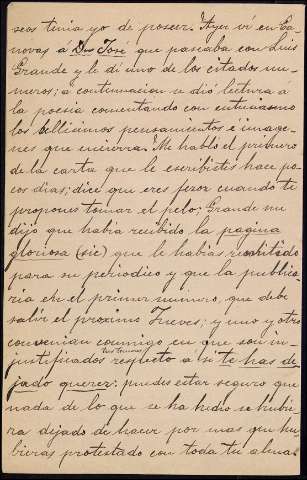 seos tenia yo de poseer. Ayer ví en Cá-
novas á Don José que paseaba con Luis
Grande y le dí uno de los citados nú-
meros; á continuacion se dió lectura á
la poesia comentando con entusiasmo
los bellísimos pensamientos é image-
nes que encierra. Me habló el primero
de la carta que le escribistes hace po-
cos dias; dice que eres feroz cuando te
propones tomar el pelo; Grande me
dijo que habia recibido la pagina
gloriosa (sic) que le habias remitido
para su periodico y que la publica-
ria en el primer número, que debe
salir el proximo Jueves; y uno y otro
convenian conmigo en que son in-
justificados tus temores respecto á si te has de-
jado querer: puedes estar seguro que
nada de lo que se ha hecho se hubie-
ra dejado de hacer por mas que hu-
bieras protestado con toda tu alma